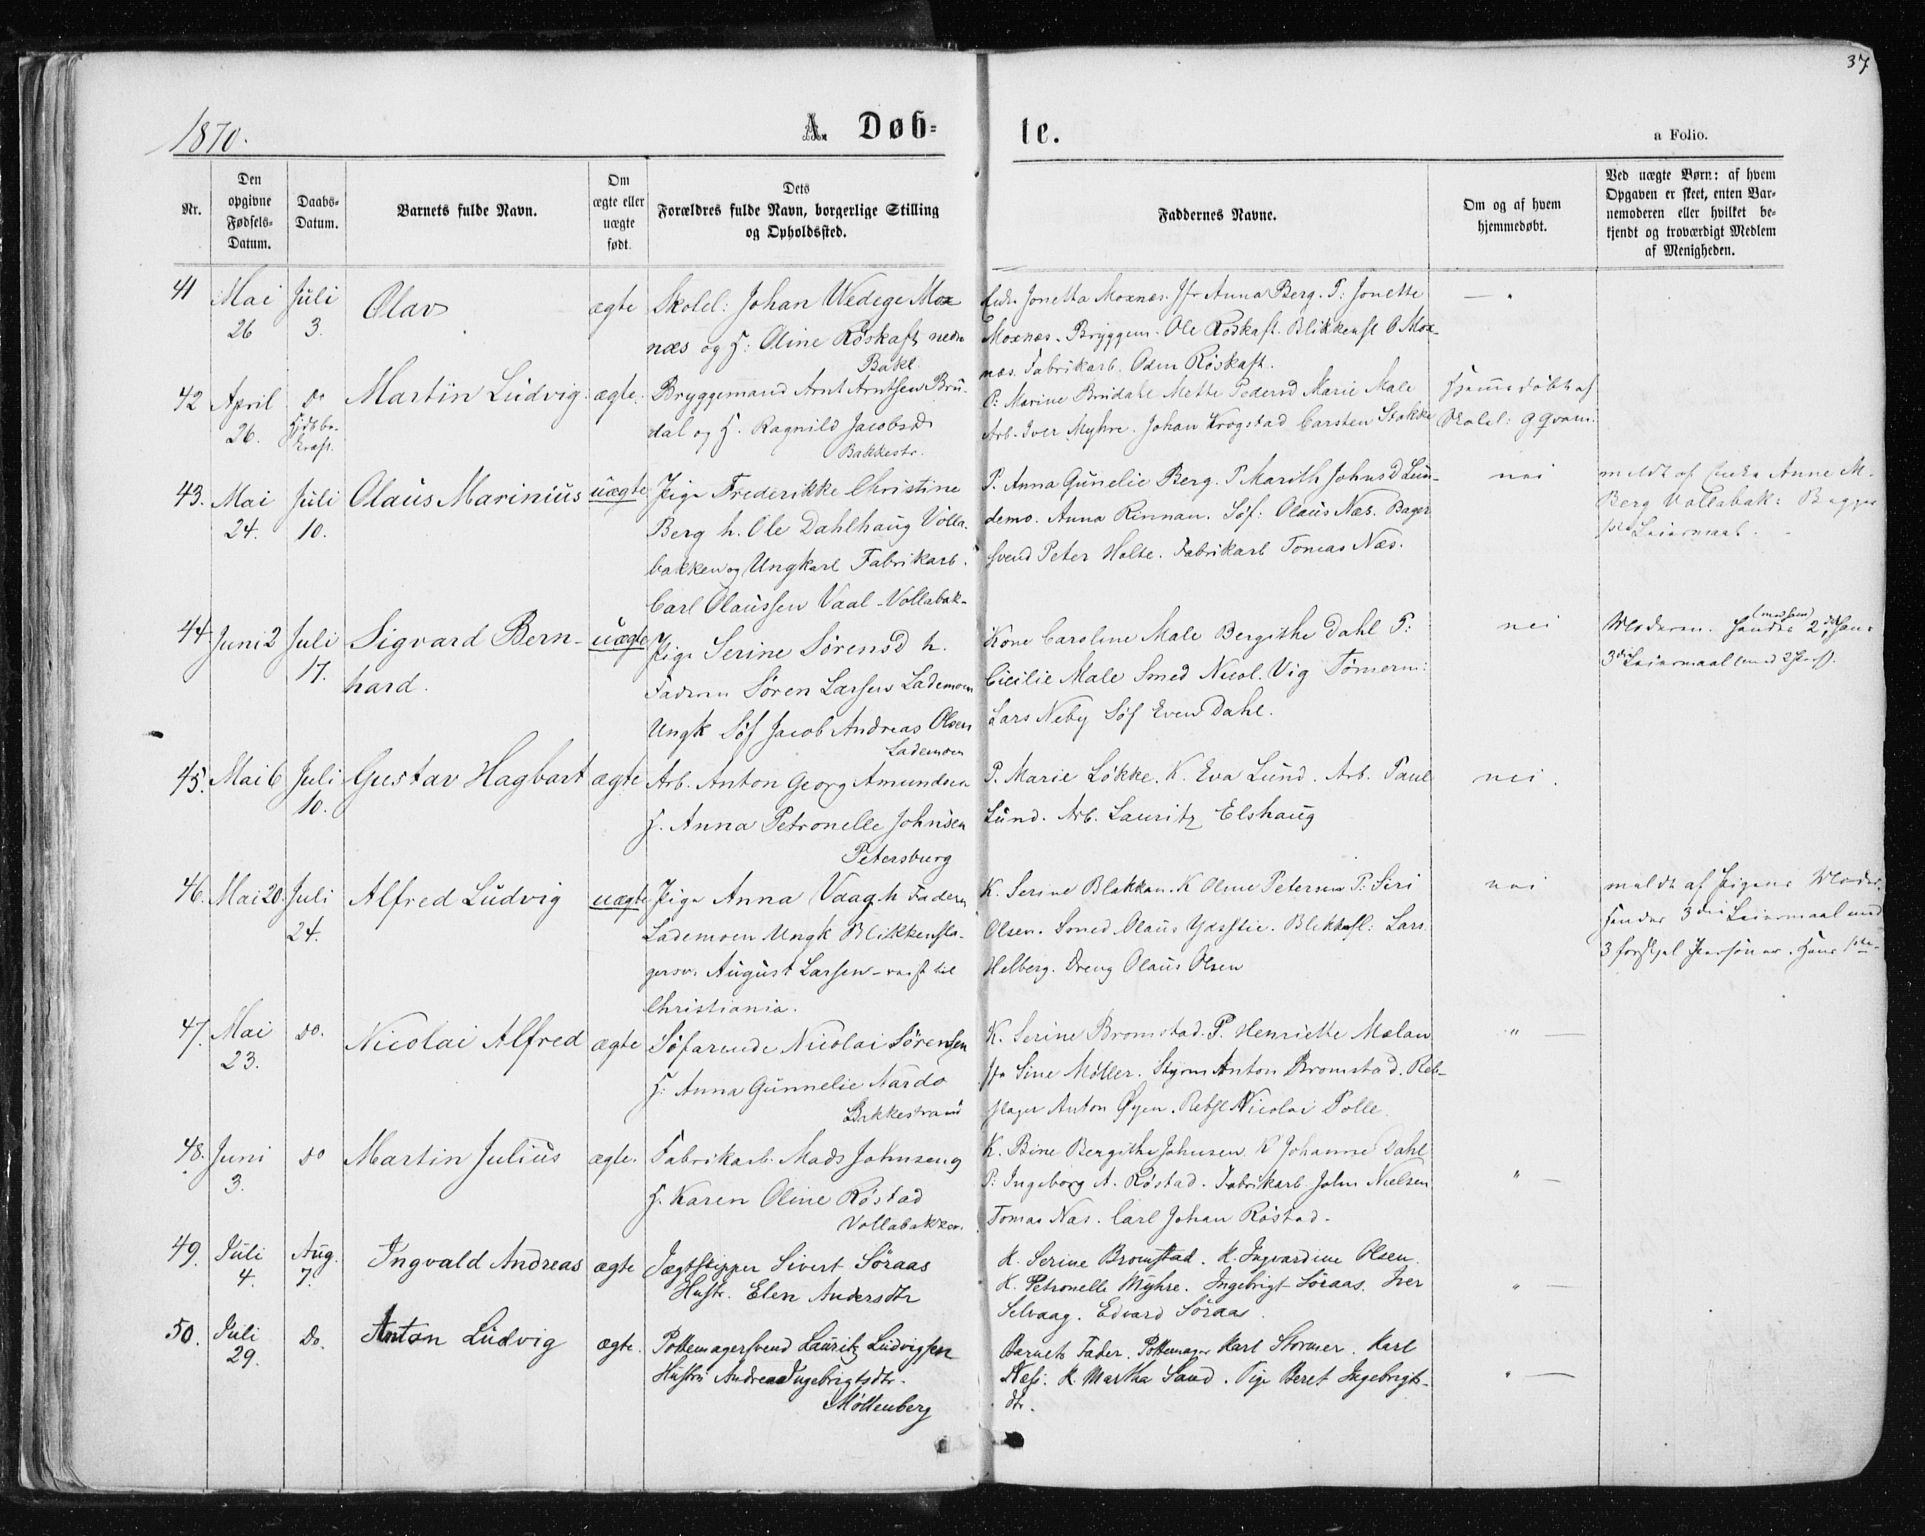 37
1870.
A. Døb-
te.
a Folio.
Nr.
Den opgivne Fødsels-Datum.
Daabs-Datum.
Barnets fulde Navn.
Om ægte eller uægte født.
Dets Forældres fulde Navn, borgerlige Stilling og Opholdssted.
Faddernes Navne.
Om og af hvem hjemmedøbt.
Ved uægte Børn: af hvem Opgaven er skeet, enten Barnemoderen eller hvilket bekjendt og troværdigt Medlem af Menigheden.
41 Mai Juli Olav ægte Skolel: Johan Wedege Mox
26 3. næs og H: Oline Röskaft nedre
Bakl
Jonetta Moxnæs. Jfr Anna Berg. P: Jonette
Moxnæs. Bryggem. Ole Röskaft. Blikkensl O Mox-
næs. Fabrikarb. Oden Röskaft.
42 April do Martin Ludvig ægte. Bryggemand Arnt Arntsen Bru-
26. dal og H. Ragnild Jacobsd
Bakkestr.
P: Marine Brudahl Mette Pedersd Marie Male
Arb. Iver Myhre. Johan Krogstad Carsten Stokke
Hjemmedöbt af
Skolel: G Qvam.
43. Mai Juli Olaus Marinius uægte Pige Frederikke Christine
24. 10. Berg h. Ole Dahlhaug Volla-
bakken og Ungkarl Fabrikarb.
Carl Olaussen Vaal-Vollabak-
P. Anna Gunelie Berg. P Marith Johnsd Lun-
demo. Anna Rinnan. Söf: Olaus Næs. Bager
svend Peter Holte. Fabrikarb Tomas Næs.
nei
meldt af Anne M.
Berg Vollabak: Begges
1ste Leiermaal.
44. Juni 2 Juli Sigvard Bern- uægte Pige Serine Sörensd h.
17. hard. Faderen Sören Larsen Lademoen
Ungk Söf Jacob Andreas Olsen
Lademoen
Kone Caroline Male Bergithe Dahl P:
Cicilie Male Smed Nicol. Vig Tömerm:
Lars Neby Söf Even Dahl.
nei
Moderen. Hendes 2det Hans
3die Leiermaal
45. Mai 6 Juli Gustav Hagbart ægte Arb. Anton Georg Amundsen
10. H. Anna Petronelle Johnsen
Petersburg
P. Marie Løkke. K. Eva Lund. Arb. Paul
Lund. Arb. Lauritz Elshaug
nei.
46. Mai 20. Juli Alfred Ludvig uægte Pige Anna Vaag h Faderen
24. Lademoen Ungk Blikkensla-
gersv. August Larsen - reist til
Christiania.
K. Serine Blakkan. K Oline Petersen P: Siri
Olsen. Smed Olaus Ydsstie. Blikkesl: Lars
Helberg. Dreng Olaus Olsen
nei
meldt af Pigens Moder.
Hendes 3die Leiermaal med
3 forskjel Personer. Hans 1ste
47. Mai do. Nicolai Alfred ægte Söfarende Nicolai Sörensen
23. H: Anna Gunnelie Nardo
Bakkestrand
K. Serine Bromstad. P. Henriette Mælan
Jfr Sine Møller. Styrm Anton Bromstad. Reb-
slager Anton Øyen. Rebsl Nicolai Polle.
" —
48. Juni do Martin Julius ægte. Fabrikarb. Mads Johnsen og
3. H. Karen Oline Röstad
Vollabakken.
K. Bine Bergithe Johnsen. K Johanne Dahl
P: Ingeborg A. Röstad. Fabrikarb John Nielsen
Tomas Næs. Carl Johan Röstad.
" —
49. Juli Aug. Ingvald Andreas ægte Jægtskipper Sivert Söraas
4. 7. Hustr. Elen Andersdtr
K. Serine Bromstad. K. Ingvardine Olsen.
K. Petronelle Myhre. Ingebrigt Söraas. Iver
Selvaag. Edvard Söraas.
" —
50. Juli Do. Anton Ludvig ægte. Pottemagersvend Lauritz Ludvigsen
29. Hustru Andrea Ingebrigtsdtr.
Möllenberg
Barnets Fader. Pottemager Karl Stormer. Karl
Næss. K. Martha Sand. Pige Beret Ingebrigts-
dtr.
" —